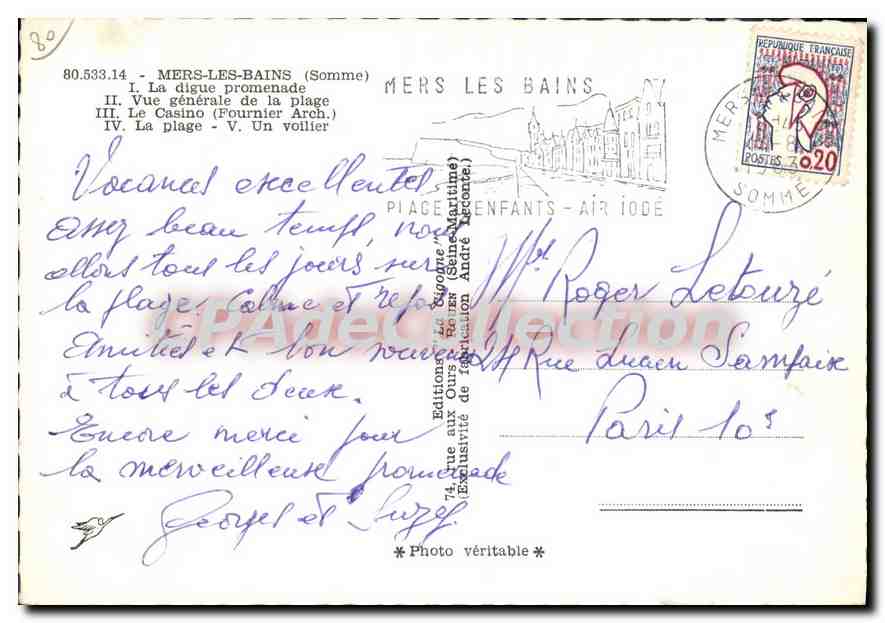 80
80.533.14 - MERS-LES-BAINS (Somme)
I. La digue promenade
II. Vue générale de la plage
III. Le Casino (Fournier Arch.)
IV. La plage - V. Un voilier
MERS LES BAINS
PLAGE D'ENFANTS - AIR IODÉ
REPUBLIQUE FRANÇAISE
POSTES
0,20
MERS
SOMME
Vacances excellentes
assez beau temps, nous
allons tous les jours sur
la plage. Calme et repos
Amitiés et bon souvenir
à tous les deux.
Encore merci pour
la merveilleuse promenade
Georges et Suzy
Editions "La Cigogne"
74, rue aux Ours - ROUEN (Seine-Maritime)
(Exclusivité de fabrication André Leconte.)
Roger Letouzé
24 Rue Lucien Sampaix
Paris 10e
* Photo véritable *
EPAdeCollection